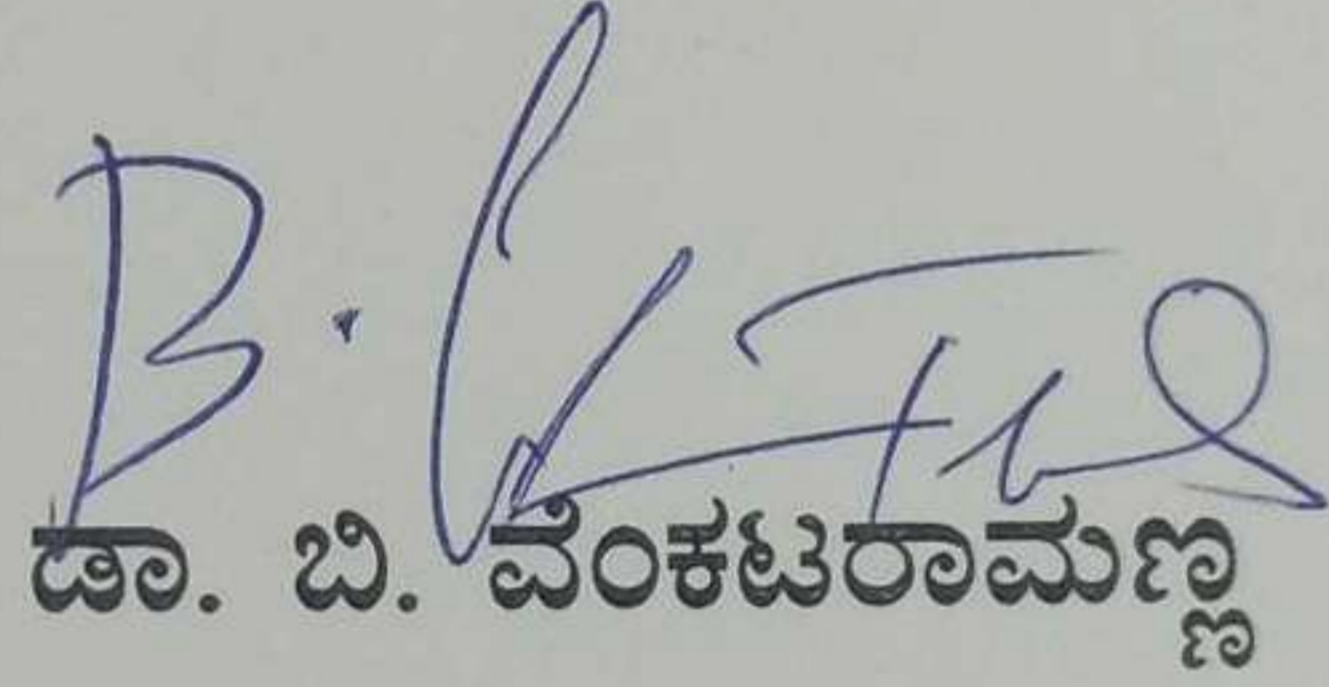 ಡಾ. ಬಿ. ವೆಂಕಟರಾಮಣ್ಣ